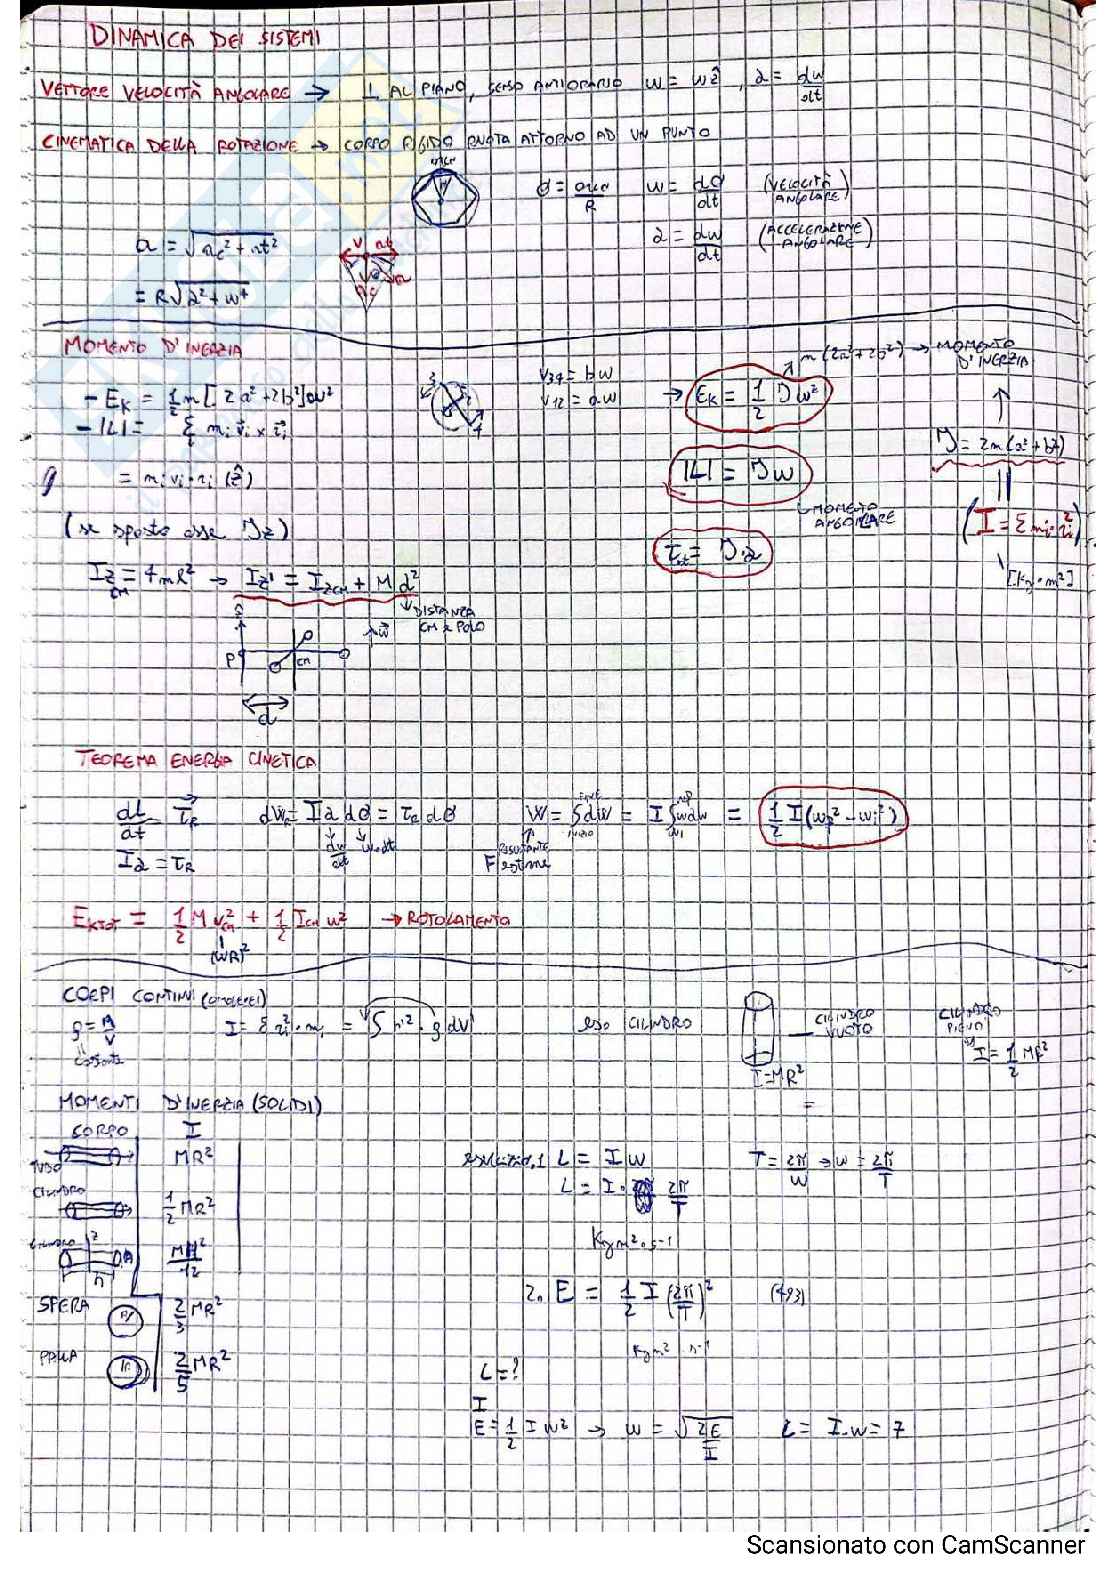 DINAMICA DEI SISTEMI
VETTORE VELOCITÀ ANGOLARE → ⊥ AL PIANO, SENSO ANTIORARIO w = wẑ, α = dw/dt
CINEMATICA DELLA ROTAZIONE → CORPO RIGIDO RUOTA ATTORNO AD UN PUNTO
θ = arco/R w = dθ/dt (VELOCITÀ ANGOLARE)
α = dw/dt (ACCELERAZIONE ANGOLARE)
a = √ac² + at²
= R√α² + w⁴
MOMENTO D'INERZIA
m(2a²+2b²) → MOMENTO D'INERZIA
- Ek = 1/2 m[2a²+2b²]w²
v34 = bw
v12 = aw
→ Ek = 1/2 I w²
- |L| = Σ mi vi × ri
I = 2m(a²+b²)
= mi vi · ri (ẑ)
|L| = I w
MOMENTO ANGOLARE
(I = Σ mi · ri²)
[kg · m²]
(se sposto asse Iz)
τtot = I · α
Iz cm = 4mR² → Iz' = Izcm + M d²
DISTANZA CM e POLO
P cm w
d
TEOREMA ENERGIA CINETICA
dL/dt = τR dWR = I α dθ = τR dθ W = ∫dW = I ∫wdw = 1/2 I(wf² - wi²)
dw/dt w·dt
RISULTANTE F esterne
Iα = τR
Ektot = 1/2 M vcm² + 1/2 Icm w² → ROTOLAMENTO
(wR)²
CORPI CONTINUI (omogenei)
ρ = M/V I = Σ ri² · mi = ∫ r² · ρ dV
costante
eso CILINDRO
CILINDRO VUOTO
I = MR²
CILINDRO PIENO
I = 1/2 MR²
MOMENTI D'INERZIA (SOLIDI)
CORPO I
TUBO MR²
CILINDRO 1/2 MR²
CILINDRO MH²/12
SFERA 2/3 MR²
PALLA 2/5 MR²
1. L = I w T = 2π/w → w = 2π/T
L = I · 2π/T
Kg m² · s-1
2. E = 1/2 I (2π/T)² (493)
Kg m² s-1
L = ?
I
E = 1/2 I w² → w = √2E/I L = I · w = 7
Scansionato con CamScanner